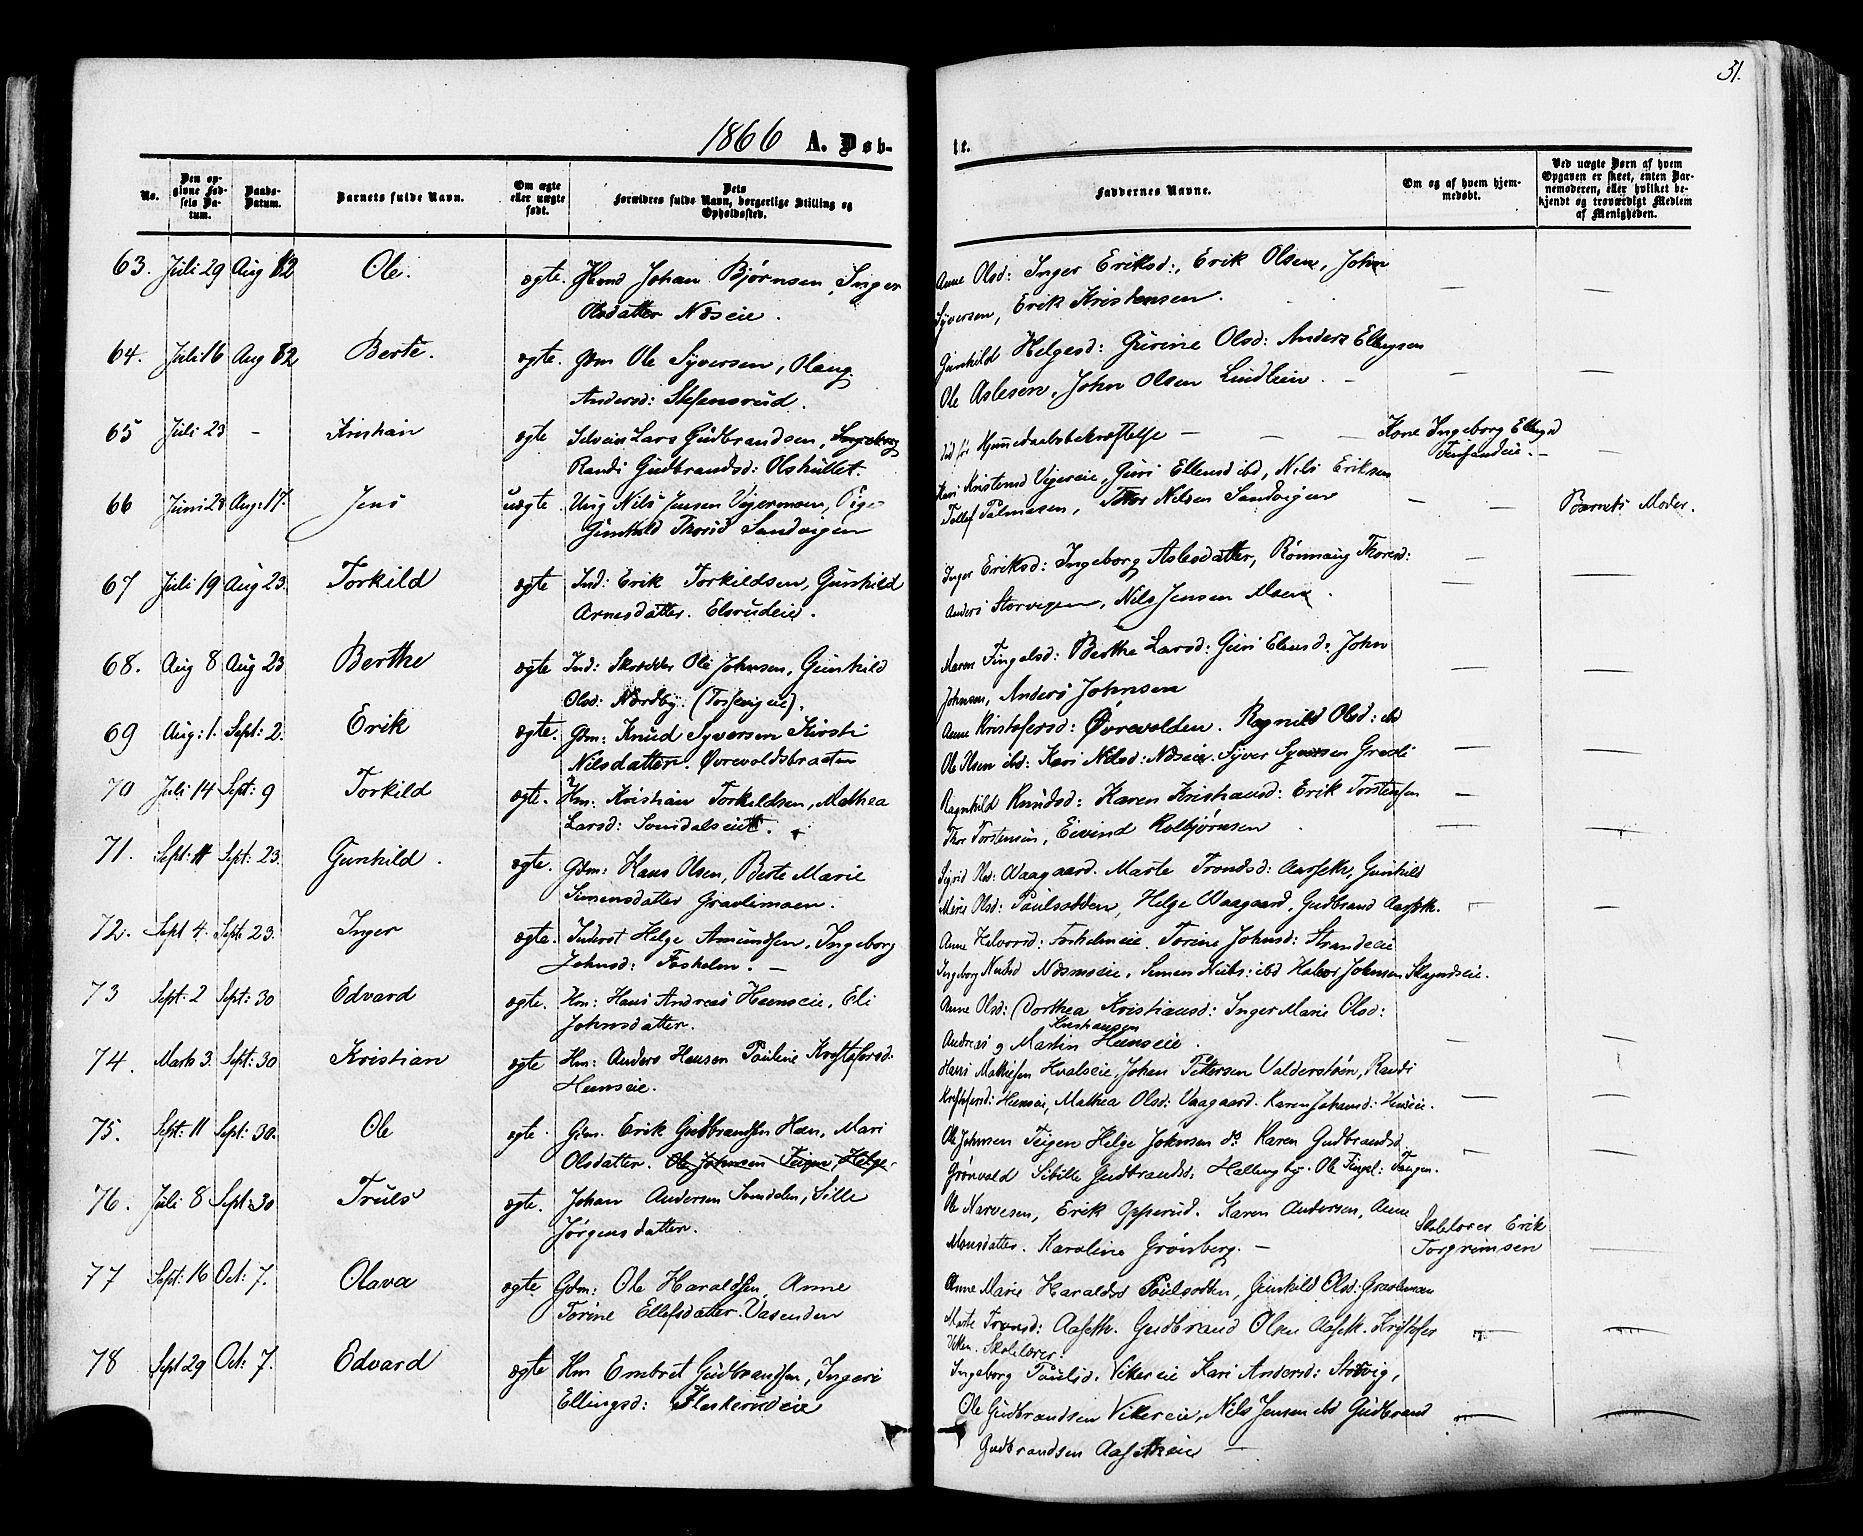 51.
1866 A. Døb-
te.
No.
Den op-
givne Fød-
sels Da-
tum.
Daabs-
Datum.
Barnets fulde Navn.
Om ægte
eller uægte
født.
Dets
Forældres fulde Navn, borgerlige Stilling og
Opholdssted.
Faddernes Navne.
Om og af hvem hjem-
medøbt.
Ved uægte Børn af hvem
Opgaven er skeet, enten Bar-
nemoderen, eller hvilket be-
kjendt og troværdigt Medlem
af Menigheden.
63. Juli 29 Aug 12 Ole. ægte. Johan Bjørnsen, Inger
Olsdatter Næseie.
Anne Olsd: Inger Eriksd:, Erik Olsen, John
Syversen, Erik Kristensen.
64. Juli 16 Aug 12 Berte. ægte. Gbm Ole Syversen, Olaug
Andersd: Stefansrud.
Gunhild Helgesd: Gurine Olsd: Anders Ellingsen
Ole Aslesen, John Olsen Lindlein. -
65 Juli 23 - Kristian ægte Selveier Lars Gudbrandsen, Ingeborg
Randi Gudbrandsd: Olshullet.
død før Hjemmedaabsbekræftelse -
Kone Ingeborg Ellingsd
66 Juni 23 Aug: 17. Jens uægte Ung. Nils Jensen Vigermoen, Pige
Gunhild Thorsd Sandvigen
Kari Kristensd Vigereie, Guri Ellensd ibd, Nils Eriksen
Tollef Palmesen, Thor Nilsen Sandvigen
Barnets Moder.
67 Juli 19 Aug 23. Torkild ægte Ind: Erik Torkildsen, Gunhild
Arnesdatter. Elsrudeie.
Inger Eriksd: Ingeborg Aslesdatter, Rønnaug Thoresd:
Anders Storvigen, Nils Jensen Moen.
68. Aug 8 Aug 23 Berthe ægte Ind: Skrædder Ole Johnsen, Gunhild
Olsd: Nordby. (Tossevigeie).
Maren Fingalsd: Berthe Larsd: Guri Elensd: John
Johnsen, Anders Johnsen
69 Aug: 1. Sept: 2. Erik ægte. Gbm: Knud Syversen Kirsti
Nilsdatter. Øvrevoldsbraaten
Anne Kristofersd: Øvrevolden. Ragnild Olsd: ibd
Ole Olsen ibd: Kari Nilsd: Næseie. Syver Syversen Gravli
70 Juli 14 Sept: 9 Torkild ægte. Hm: Kristian Torkildsen, Mathea
Larsd: Somdalseie.
Ragnhild Knudsd: Karen Kristiansd: Erik Torstensen
Thor Torstensen, Eivind Kolbjørnsen
71. Sept: 11 Sept: 23. Gunhild. ægte. Gbm: Hans Olsen, Berte Marie
Simensdatter Gravlimoen.
Sigrid Olsd: Vaagaard. Marte Trondsd: Aaseth, Gunhild
Marie Olsd: Paulsodden, Helge Vaagaard, Gudbrand Aaseth.
72. Sept 4. Sept: 23. Inger ægte. Inderst Helge Amundsen, Ingeborg
Johnsd: Foskelm. -
Anne Halvorsd: Foskelmeie, Torine Johnsd: Strandeie
Ingeborg Nubsd Næsmoeie, Simen Nubs: ibd Halvor Johnsen Skagnæseie.
73 Sept: 2 Sept: 30 Edvard ægte. Hm: Hans Andreas Hænseie, Eli
Johnsdatter.
Anne Olsd: Dorthea Kristiansd: Inger Marie Olsd:
Kristiansen
Andreas og Martin Hænseie.
74. Marts 3. Sept: 30 Kristian ægte Hm: Anders Hansen Pauline Kristofersd.
Hænseie.
Hans Mathisen Hvalseie, Johan Pettersen Valderstøen, Randi
Kristofersd: Hænseie, Mathea Olsd: Vaagaard. Karen Johansd: Hænseie.
75. Sept: 11 Sept: 30. Ole ægte. Gbm. Erik Gudbrandsen Hæn, Mari
Olsdatter. Ole Johnsen Teigen, Helge
Ole Johnsen Teigen Helge Johnsen do Karen Gudbrandsd.
Grønvold Sibille Gudbrandsd: Hallingby. Ole Fingal: Tangen.
76. Juli 8 Sept: 30 Truls ægte. Johan Andersen Somdalen, Sille
Jørgensdatter.
Ole Narvesen, Erik Opperud. Karen Andersen, Anne
Monsdatter. Karoline Grønberg. -
Skolelærer Erik
Torgrimsen
77 Sept: 16 Oct: 7. Olava ægte Gbm: Ole Haraldsen, Anne
Torine Ellefsdatter. Vasenden
Anne Marie Haraldsd Paulsodden, Gunhild Olsd: Gravlimoen
Marte Tronsd: Aaseth. Gudbrand Olsen Aaseth. Kristofer
Viken. Skolelærer.
78 Sept 29 Oct: 7. Edvard ægte Hm Embret Gudbrandsen, Ingeri
Ellingsd: Flaskerudeie
Ingeborg Paulsd. Vikereie Kari Andersd: Storvig,
Ole Gudbrandsen Vikereie, Nils Jensen ibd Gudbrand
Gudbrandsen Aasetheie -